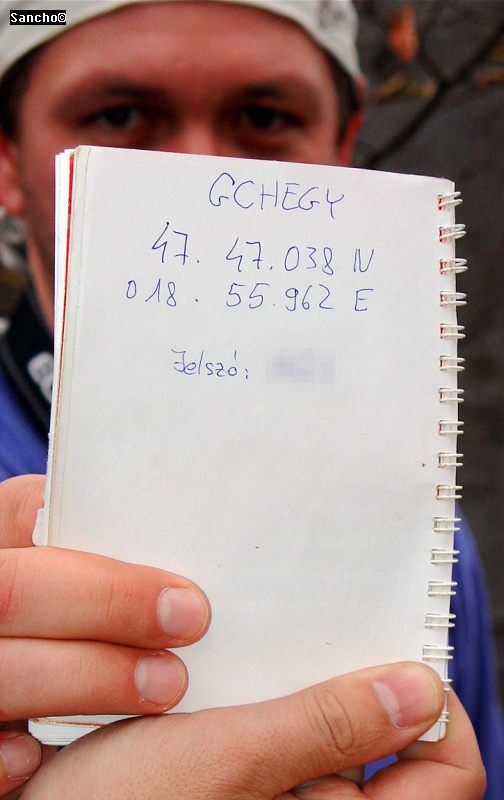 Sancho©
GCHEGY
47. 47.038 N
018. 55.962 E
Jelszó: